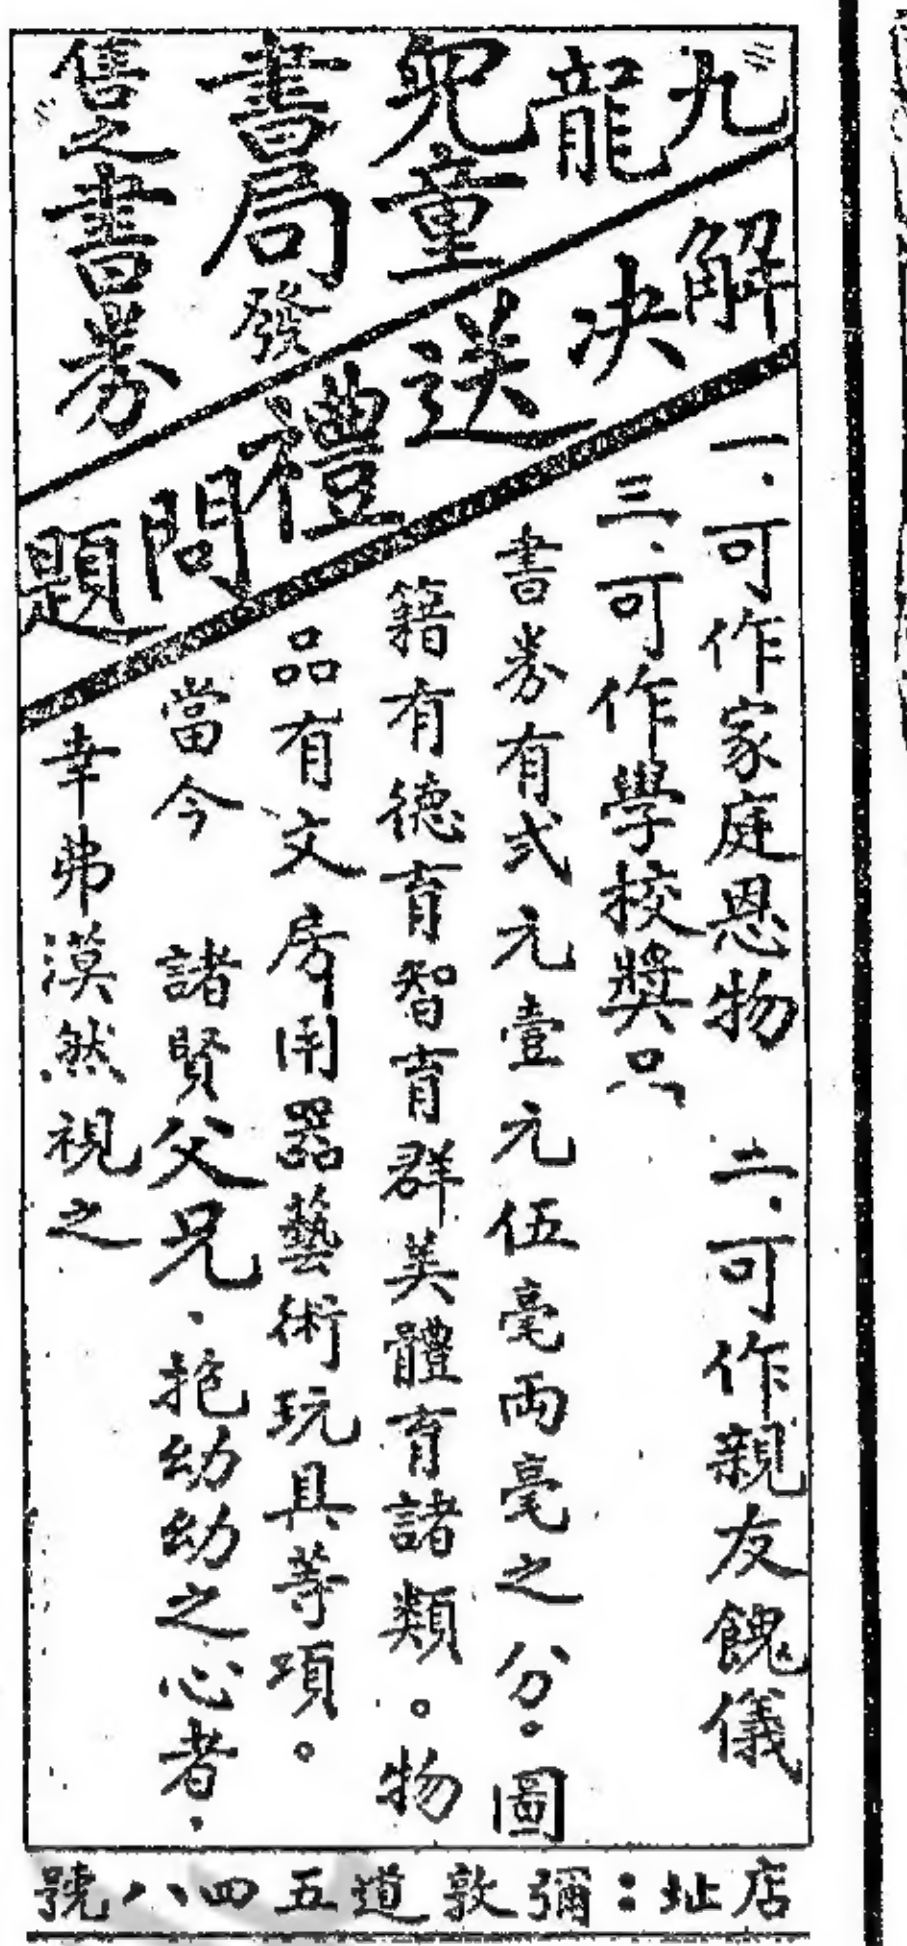 九龍兒童書局發售之書券
解決送禮問題
一．可作家庭恩物　二．可作親友餽儀
三．可作學校獎品
書券有弍元壹元伍毫両毫之分。圖
籍有德育智育群美體育諸類。物
品有文房用器藝術玩具等項。
當今　諸賢父兄．抱幼幼之心者．
幸弗漠然視之
店址：彌敦道五四八號